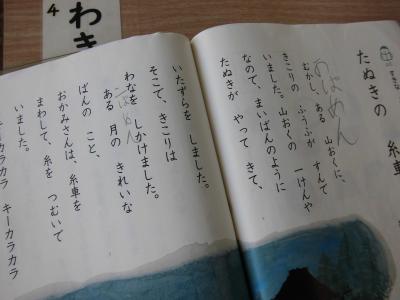 たぬきの 糸車
むかし、ある 山おくに、
きこりの ふうふが すんで
いました。山おくの 一けんや
なので、まいばんのように
たぬきが やって きて、
いたずらを しました。
そこで、きこりは
わなを しかけました。
ある 月の きれいな
ばんの こと、
おかみさんは、糸車を
まわして、糸を つむいで
いました。
キーカラカラ キーカラカラ
4
わき